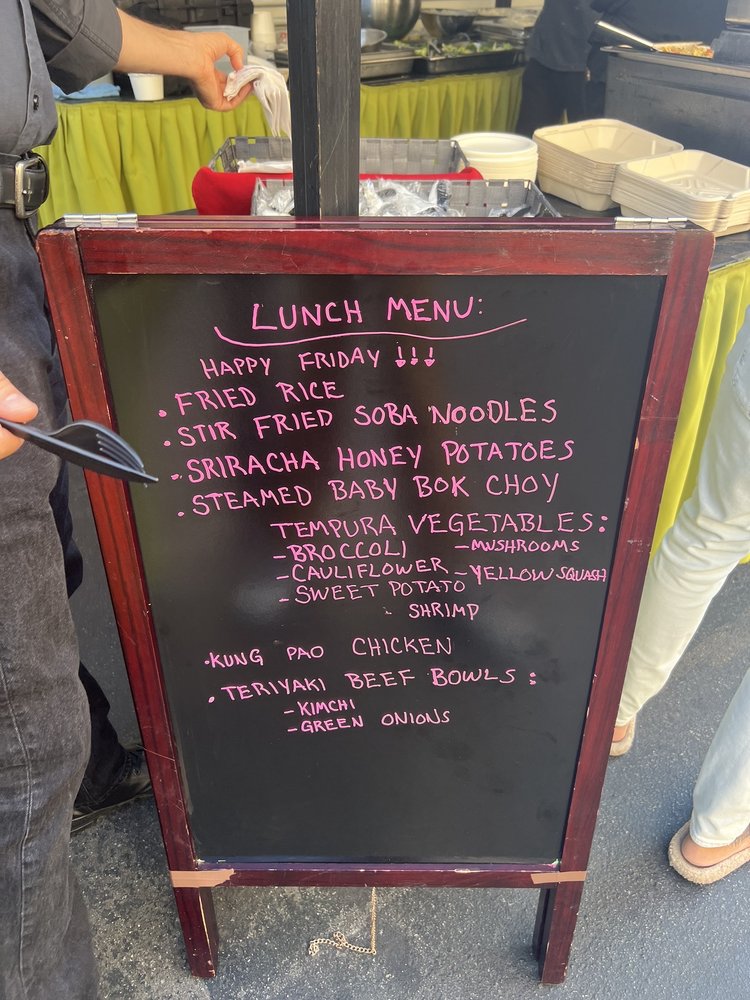 LUNCH MENU:
HAPPY FRIDAY !!!
• FRIED RICE
• STIR FRIED SOBA NOODLES
• SRIRACHA HONEY POTATOES
• STEAMED BABY BOK CHOY
TEMPURA VEGETABLES:
- BROCCOLI - MUSHROOMS
- CAULIFLOWER - YELLOW SQUASH
- SWEET POTATO
- SHRIMP
• KUNG PAO CHICKEN
• TERIYAKI BEEF BOWLS:
- KIMCHI
- GREEN ONIONS